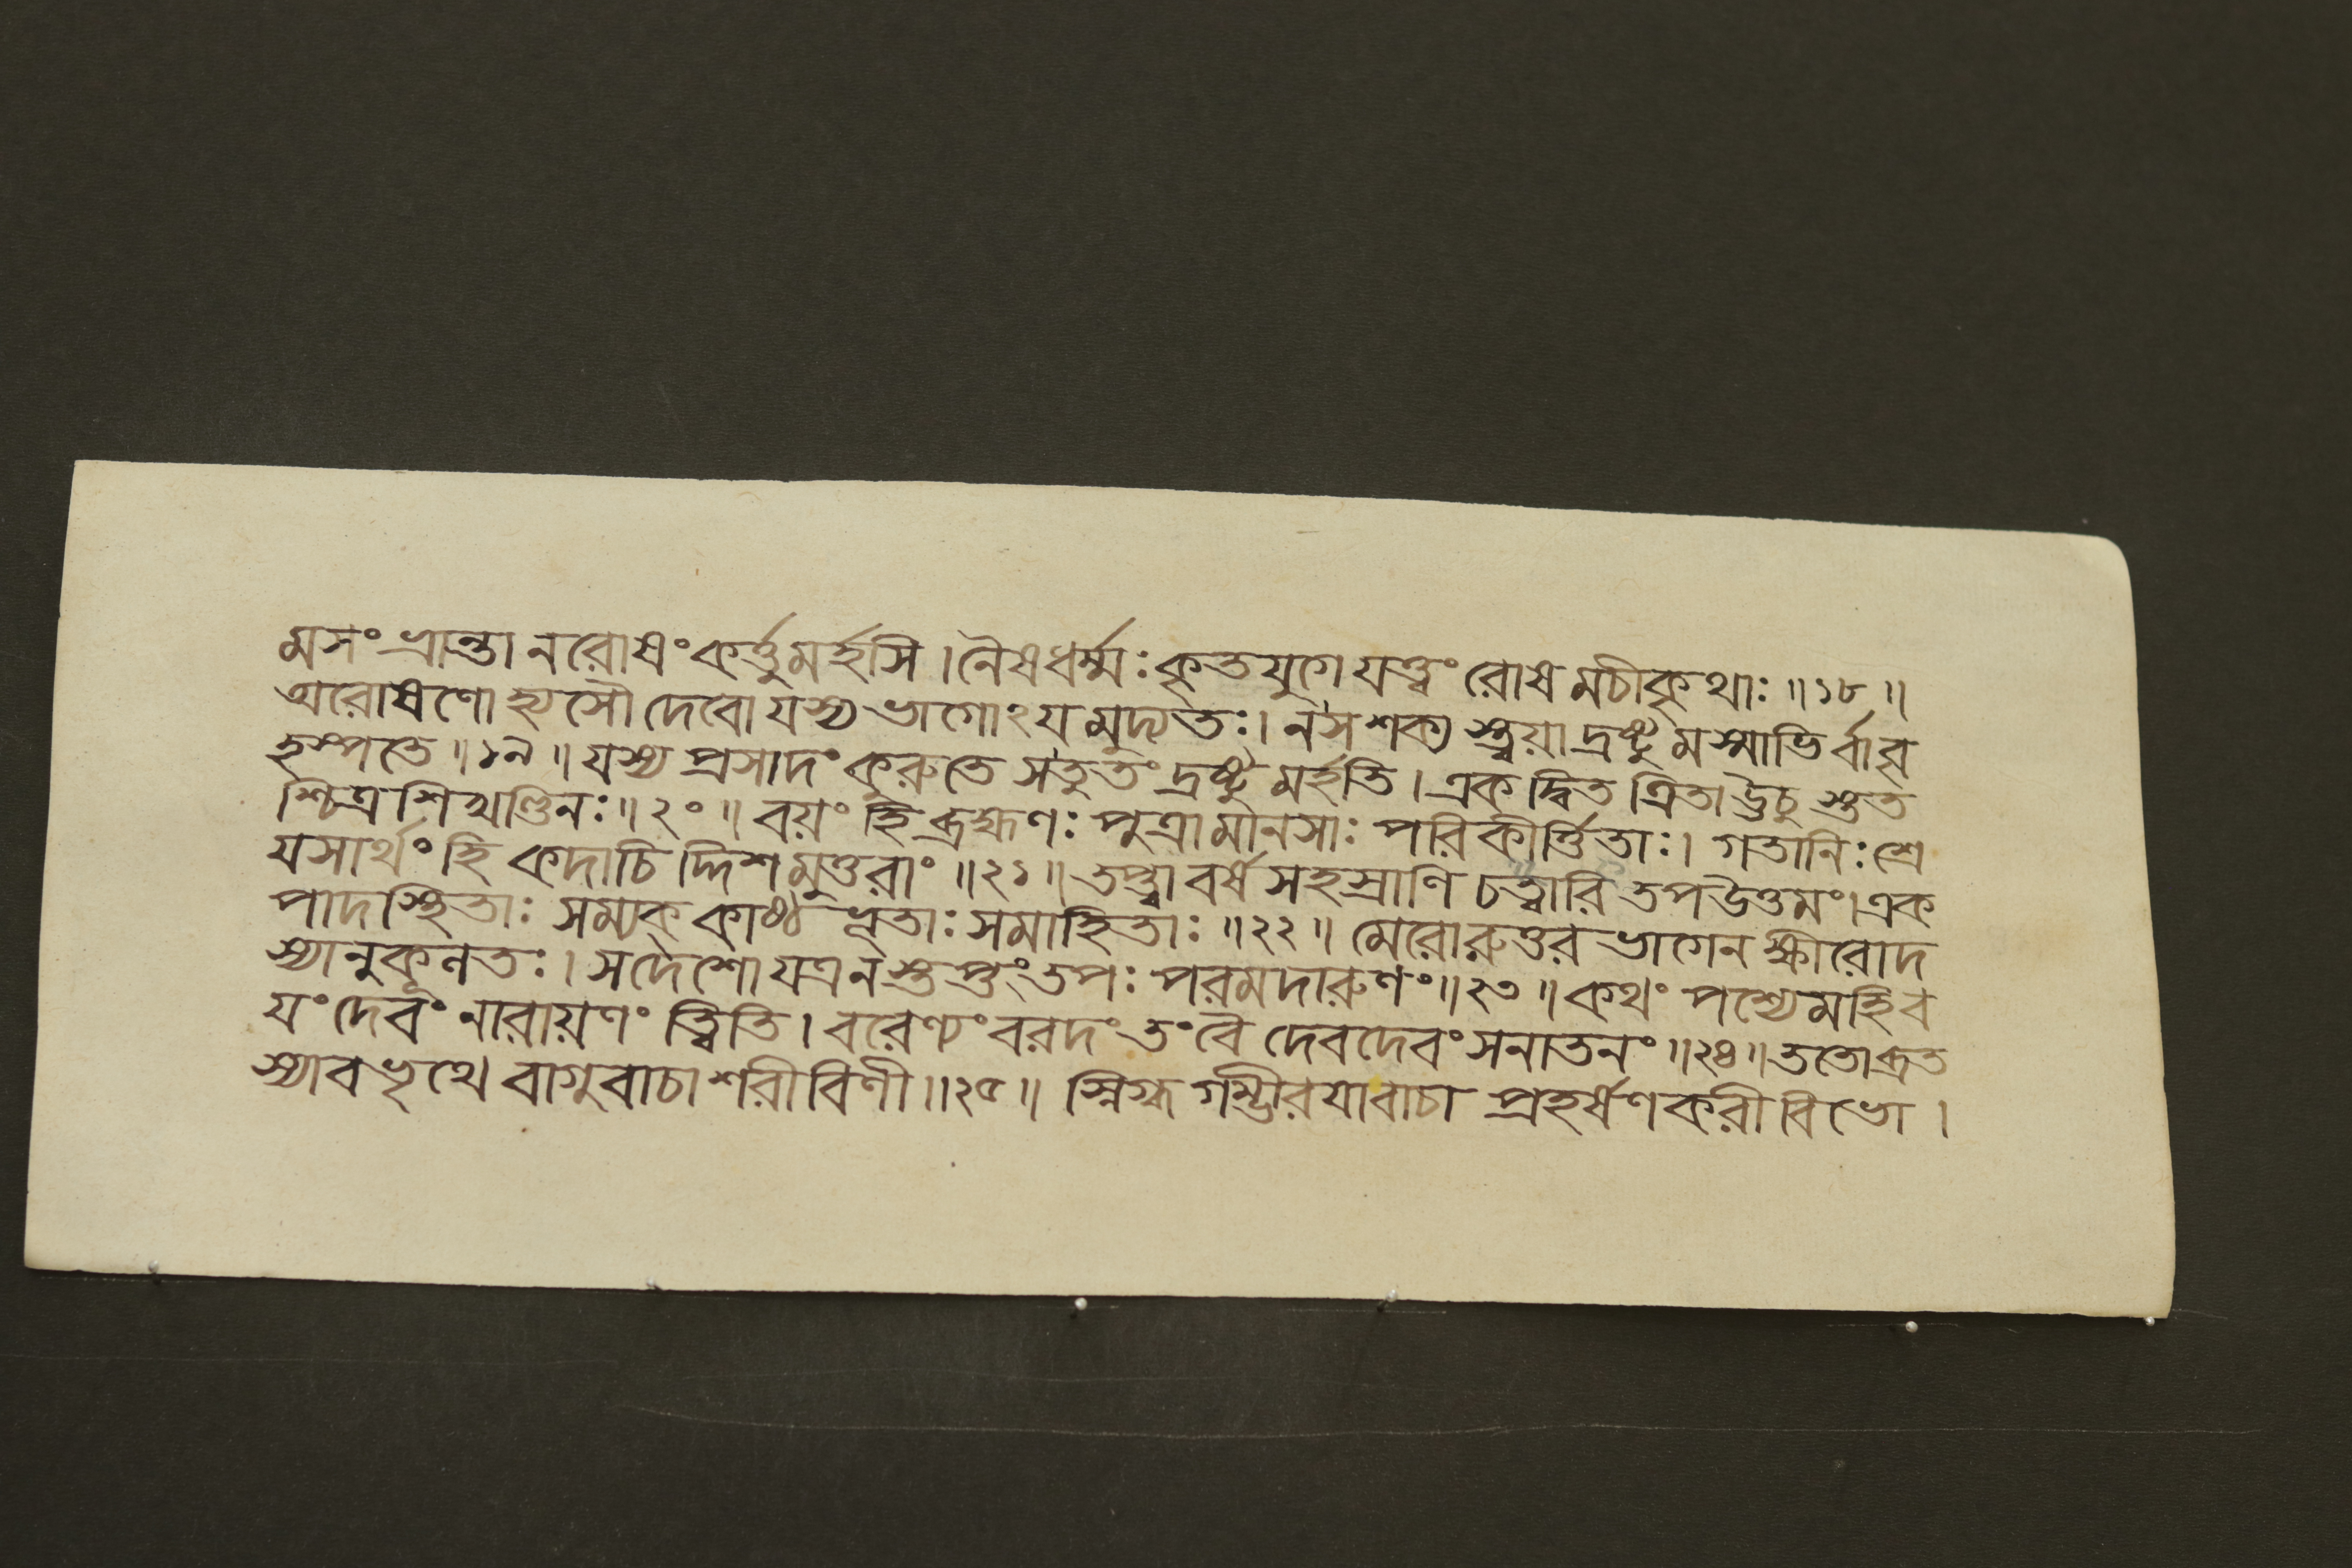 মসংভ্রান্তা ন রোষং কর্ত্তুমর্হসি । নৈষ ধর্ম্মঃ কৃতযুগে যত্ত্বং রোষমচীকৃথাঃ ॥ ১৮ ॥
অরোষণোহ্যসৌ দেবো যস্য ভাগোঽযমুদ্যতঃ । ন স শক্য স্ত্বয়া দ্রষ্টুমস্মাভির্বা বৃ
হস্পতে ॥ ১৯ ॥ যস্য প্রসাদং কুরুতে স তু তং দ্রষ্টুমর্হতি । একদ্বিতত্রিতা ঊচু স্তত
শ্চিত্রশিখণ্ডিনঃ ॥ ২০ ॥ বয়ং হি ব্রহ্মণঃ পুত্রা মানসাঃ পরিকীর্ত্তিতাঃ । গতা নিঃশ্রে
যসার্থং হি কদাচি দ্দিশমুত্তরাং ॥ ২১ ॥ তপ্ত্বা বর্ষসহস্রাণি চত্বারি তপ উত্তমং । এক
পাদস্থিতাঃ সম্যক্ কাষ্ঠভূতাঃ সমাহিতাঃ ॥ ২২ ॥ মেরোরুত্তরভাগেন ক্ষীরোদ
স্যানুকূলতঃ । স দেশো যত্র ন স্তপ্তং তপঃ পরমদারুণং ॥ ২৩ ॥ কথং পশ্যেমহি ব
যং দেবং নারায়ণং ত্বিতি । বরেণ্যং বরদং তং বৈ দেবদেবং সনাতনং ॥ ২৪ ॥ ততো ব্রত
স্যাবভৃথে বাগুবাচাশরীরিণী ॥ ২৫ ॥ স্নিগ্ধগম্ভীরযা বাচা প্রহর্ষণকরী বিভো ।